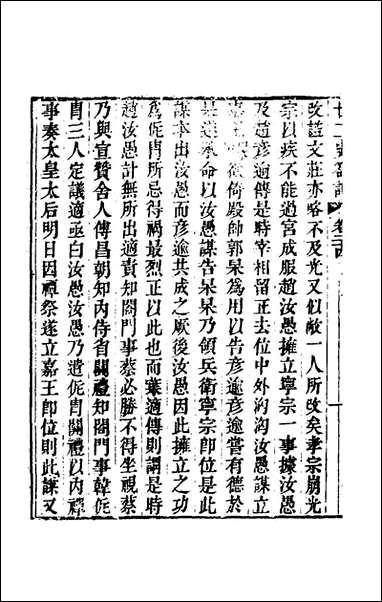 廿二史劄記 卷二十四
改諡文莊亦略不及光又似敵一人所改矣孝宗崩光
宗以疾不能過宮成服趙汝愚擁立寧宗一事據汝愚
及趙彥逾傳是時光宗留正去位中外洶洶汝愚謀立
嘉王欲倚殿帥郭杲為用以告彥逾彥逾嘗有德於
杲遂承命以汝愚謀告杲杲乃領兵衛寧宗即位是此
謀本出汝愚而彥逾共成之厥後汝愚因此擁立之功
為侂冑所忌得禍最烈正以此也而葉適傳則謂是時
趙汝愚計無所出適責知閤門事蔡必勝不得坐視蔡
乃與宣贊舍人傅昌朝知內侍省關禮知閤門事韓侂
冑三人定議適亟白汝愚汝愚乃遣侂冑關禮以內禪
事奏太皇太后明日因禫祭遂立嘉王即位則此謀又